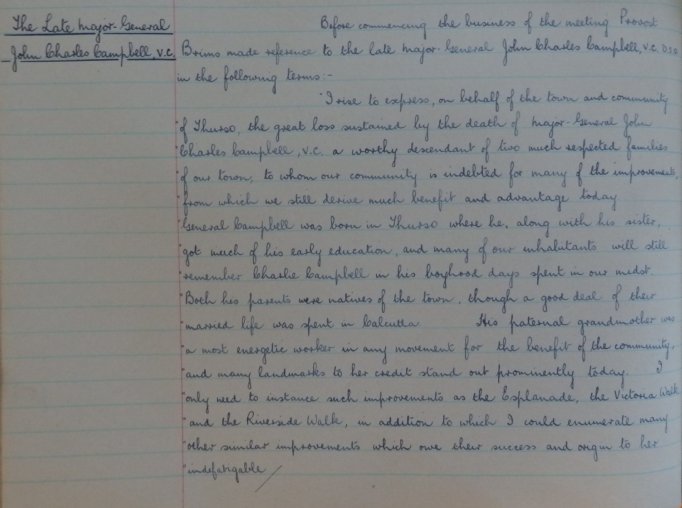 The Late Major-General
John Charles Campbell, V.C.
Before commencing the business of the meeting Provost
Brims made reference to the late Major-General John Charles Campbell, V.C. D.S.O
in the following terms:-
"I rise to express, on behalf of the town and community
"of Thurso, the great loss sustained by the death of Major-General John
"Charles Campbell, V.C. a worthy descendant of two much respected families
"of our town, to whom our community is indebted for many of the improvements,
"from which we still derive much benefit and advantage today
"General Campbell was born in Thurso where he, along with his sister,
"got much of his early education, and many of our inhabitants will still
"remember Charlie Campbell in his boyhood days spent in our midst.
"Both his parents were natives of the town, though a good deal of their
"married life was spent in Calcutta His paternal grandmother was
"a most energetic worker in any movement for the benefit of the community,
"and many landmarks to her credit stand out prominently today. I
"only need to instance such improvements as the Esplanade, the Victoria Walk
"and the Riverside Walk, in addition to which I could enumerate many
"other similar improvements which owe their success and origin to her
"indefatigable /